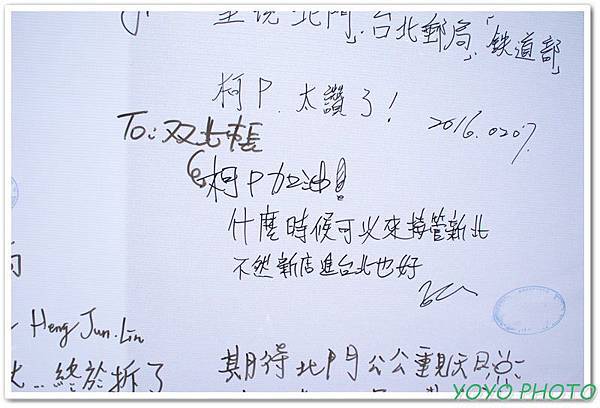 重現北門、台北郵局、「鉄道部」
柯P. 太讚了!
2016.0207.
To:双北市長
柯P加油!
什麼時候可以來接管新北
不然新店進台北也好
Heng Jun.Lin
終於拆了
期待北門公公重見天日
YOYO PHOTO